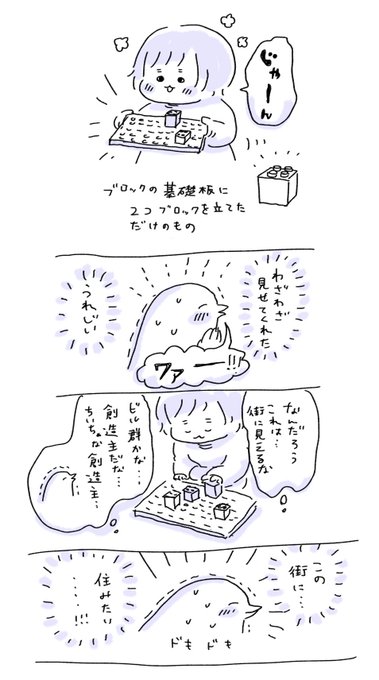 じゃーん
ブロックの基礎板に
2コブロックを立てた
だけのもの
わざわざ
見せてくれた
うれしい
ワァー!!
なんだろう
これは…
街に見えるな
ビル群かな…
創造主だな…
ちいちゃな創造主…
この
街に…
住みたい
・・・・!!!
ドも ドも